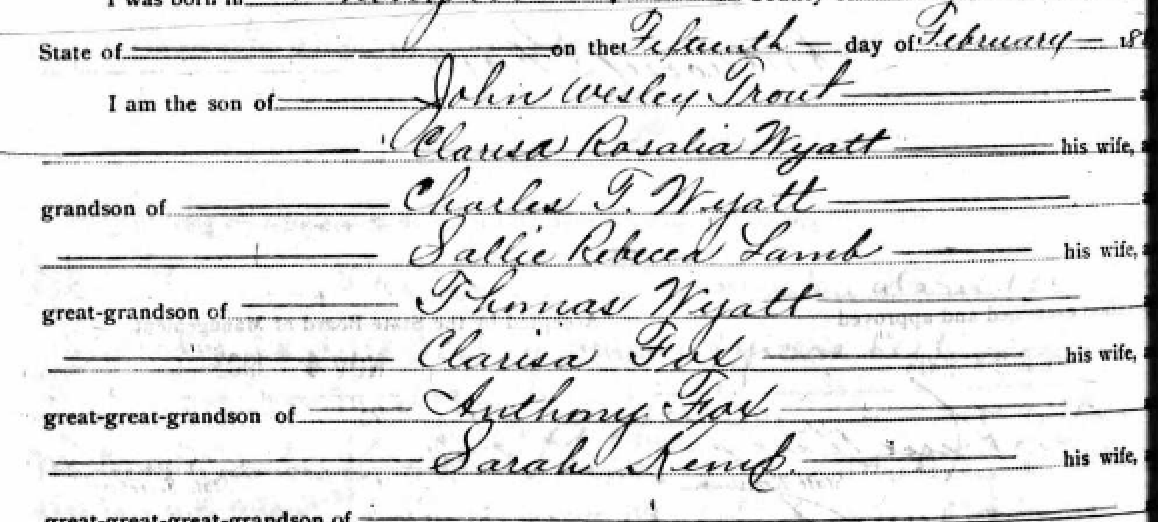 I was born in
State of on the Fifteenth day of February 18
I am the son of John Wesley Trout
Clarisa Rosalia Wyatt his wife,
grandson of Charles T. Wyatt
Sallie Rebecca Lamb his wife,
great-grandson of Thomas Wyatt
Clarisa Fox his wife,
great-great-grandson of Anthony Fox
Sarah Kemp. his wife,
great-great-great-grandson of